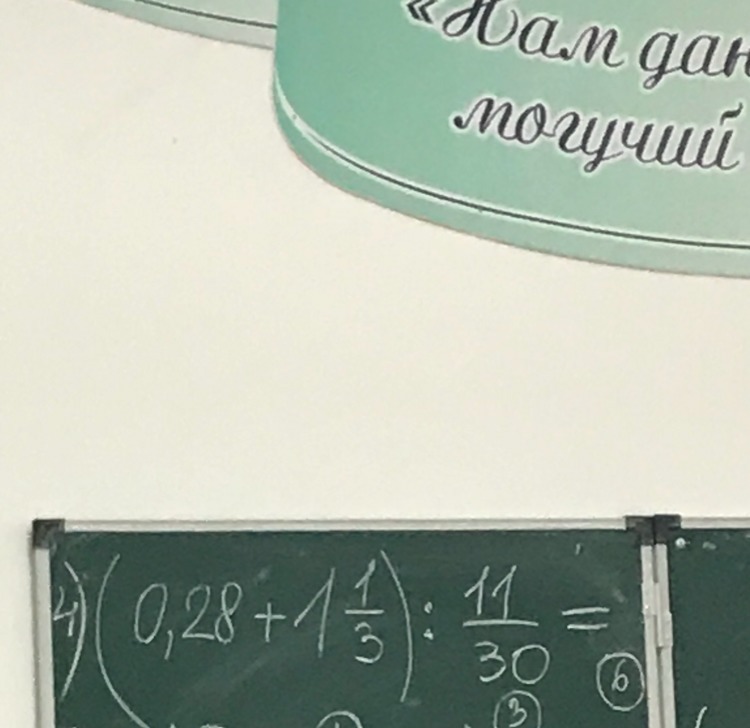 «Нам дан
могучий
4) (0,28 + 1 1/3) : 11/30 =
6
3